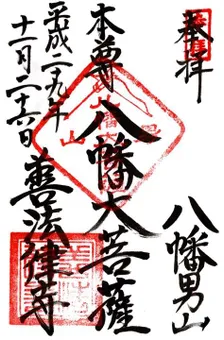 奉拝
八幡男山
本尊
八幡大菩薩
平成二九年
十一月二十六日
善法律寺